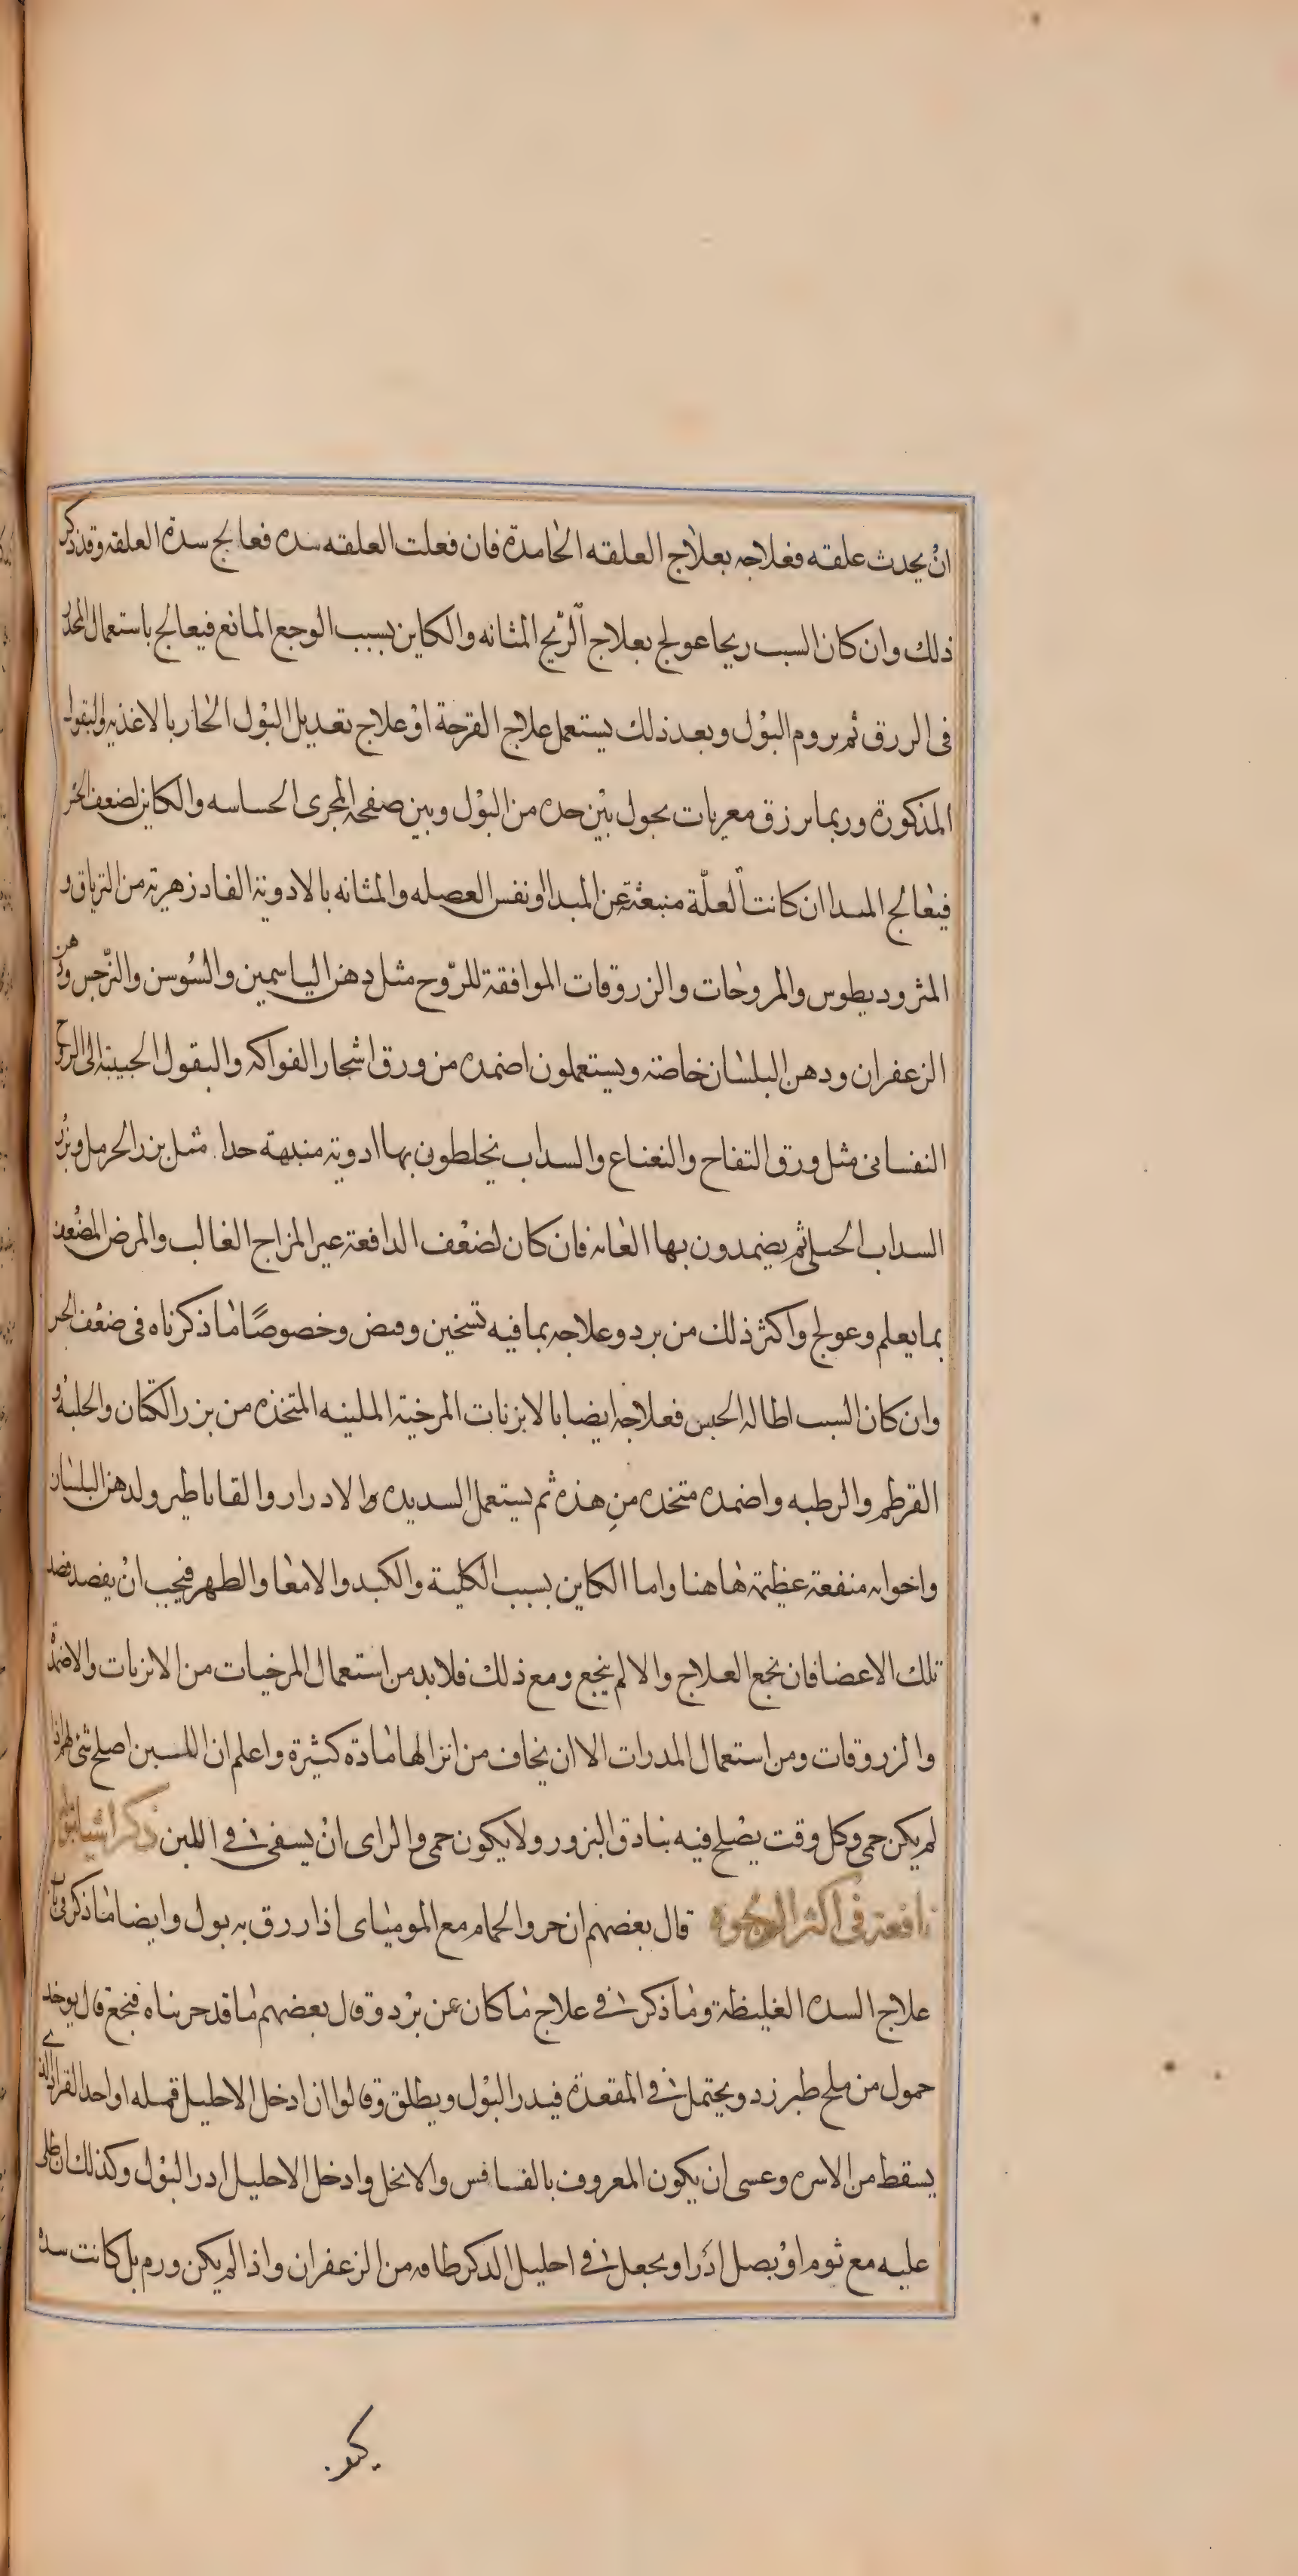 ان يحدث علقه فعلاجه بعلاج العلقه الجامدة فان فعلت العلقه سده فعالج سدة العلقه وقد ذكر
ذلك وان كان السبب ريحا عولج بعلاج الريح المثانه والكاين بسبب الوجع المانع فيعالج باستعمال المخدر
فى الزرق ثم يروم البول وبعد ذلك يستعمل علاج القرحة او علاج تعديل البول الحار بالاغذيه والبقول
المذكورة وربما يزرق مغريات يحول بين حده من البول وبين صفحه المجرى الحساسه والكاين لضعف الحس
فيعالج المبدا ان كانت العلّة منبعثة عن المبدا او نفس العضله والمثانه بالادوية الفادزهرية من الترياق و
المثروديطوس والمروخات والزروقات الموافقة للروح مثل دهن الياسمين والسوسن والنرجس ودهن
الزعفران ودهن البلسان خاصة ويستعملون اضمده من ورق اشجار الفواكه والبقول الحبيبة الى الروح
النفسانى مثل ورق التفاح والنعناع والسداب يخلطون بها ادوية منبهة جدا مثل بزر الحرمل وبزر
السداب الجبلى ثم يضمدون بها العانه فان كان لضعف الدافعة عير المزاج الغالب والمرض المضعف
بما يعلم وعولج واكثر ذلك من برد وعلاجه بما فيه تسخين وقبض وخصوصًا ما ذكرناه فى ضعف الحس
وان كان السبب اطاله الحبس فعلاجه ايضا بالابزنات المرخية الملينه المتخذه من بزر الكتان والحلبة و
القرطم والرطبه واضمده متخذه من هذه ثم يستعمل السديده والادرار والقاباطير ولدهن البلسان
واخواته منفعة عظيمة هاهنا واما الكاين بسبب الكلية والكبد والامعا والظهر فيجب ان يقصد قصد
تلك الاعضا فان نجع العلاج والا لم ينجع ومع ذلك فلا بد من استعمال المرخيات من الابزنات والاضمدة
والزروقات ومن استعمال المدرات الا ان يخاف من انزالها مادة كثيرة واعلم ان اللبن اصلح شى لهم اذا
لم يكن حمى وكل وقت يصلح فيه بنادق البزور ولا يكون حمى والراى ان يسقى فى اللبن ذكر اشيا بوليه
نافعة فى اكثر الوجوه قال بعضهم ان خرو الحمام مع الموميای اذا زرق به بول وايضا ما ذكر فى باب
علاج السده الغليظة وما ذكر فى علاج ما كان عن برد وقال بعضهم ما قد جربناه فنجع قال يوخذ
حمول من ملح طبرزد ويحتمل فى المقعدة فيدر البول ويطلق وقالوا ان ادخل الاحليل قمله او احد القراد الذى
يسقط من الاسره وعسى ان يكون المعروف بالفسافس والانجل وادخل الاحليل ادر البول وكذلك ان طلى
عليه مع ثوم او بصل ادرا ويجعل فى احليل الذكر طاقه من الزعفران واذا لم يكن ورم بل كانت سده